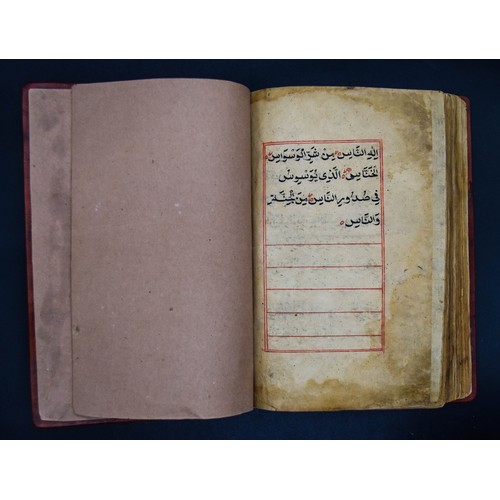 اِلٰهِ النَّاسِ مِنْ شَرِّ الْوَسْوَاسِ
الْخَنَّاسِ الَّذِي يُوَسْوِسُ
فِي صُدُورِ النَّاسِ مِنَ الْجِنَّةِ
وَالنَّاسِ